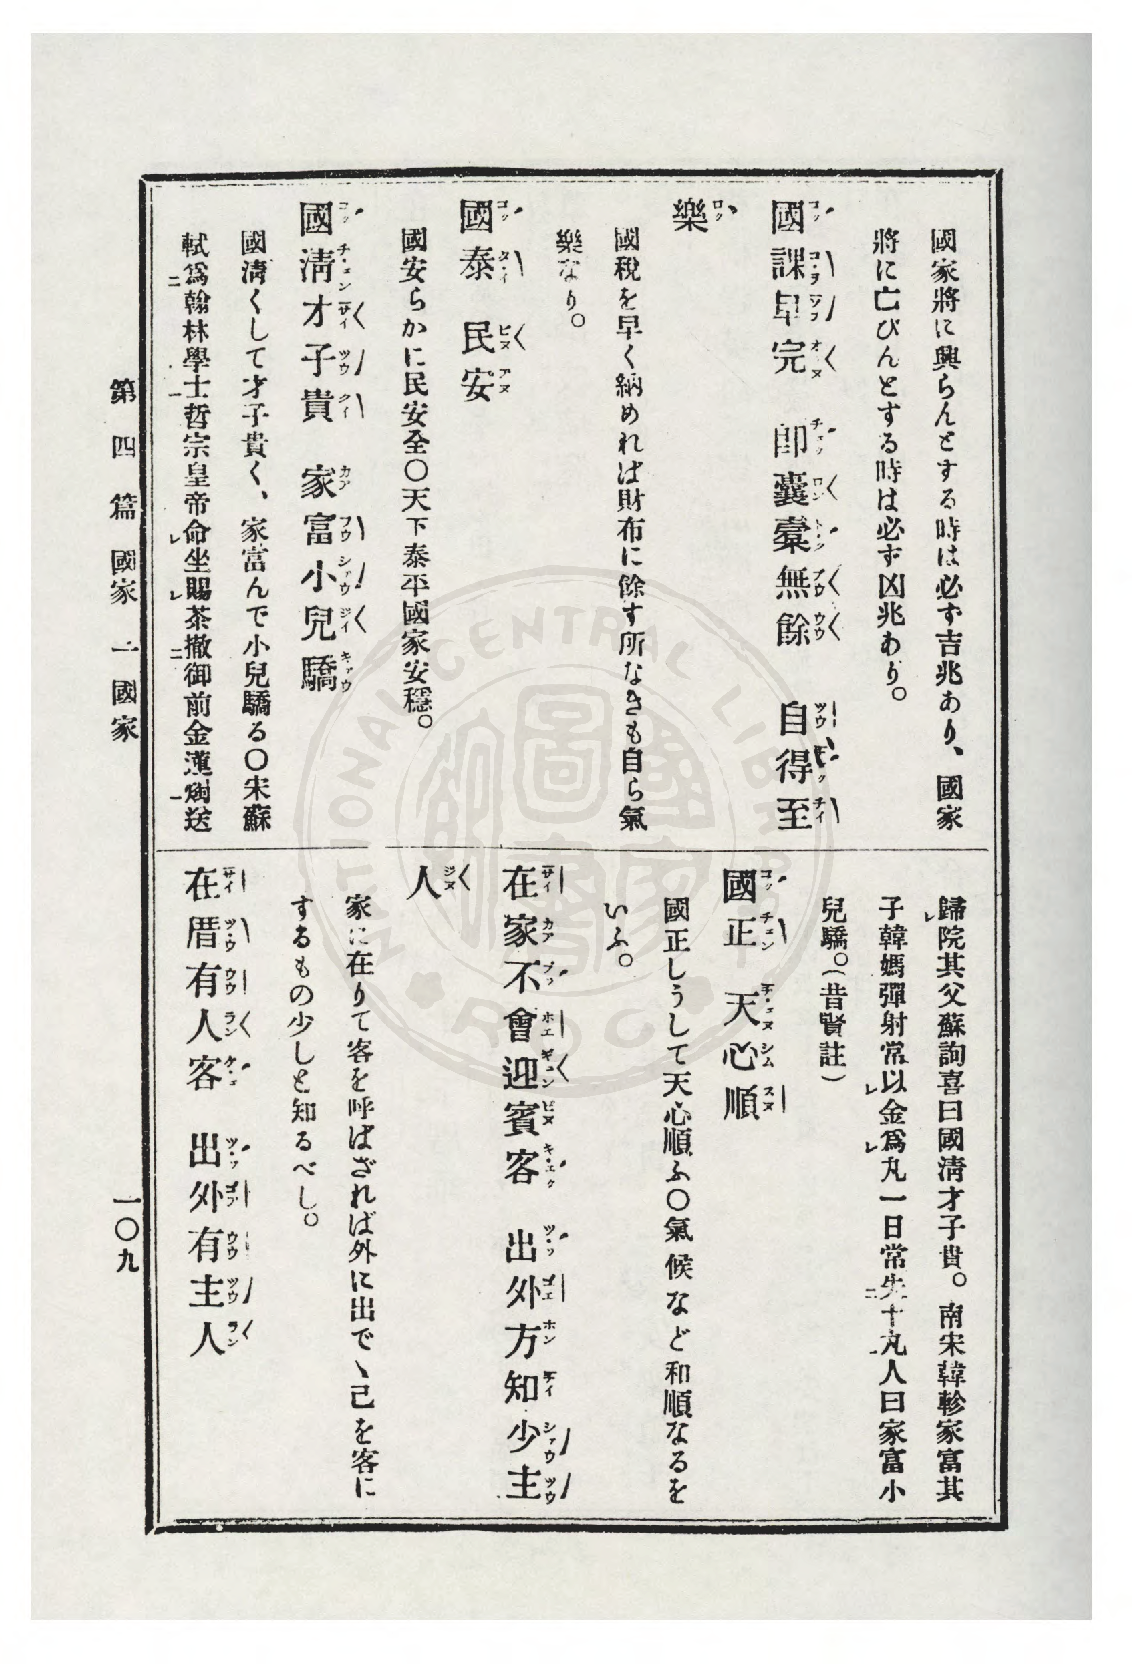 國家將に興らんとする時は必ず吉兆あり、國家
將に亡びんとする時は必ず凶兆あり。
國課早完 卽囊橐無餘 自得至
樂
國稅を早く納めれば財布に餘す所なきも自ら氣
樂なり。
國泰 民安
國安らかに民安全〇天下泰平國家安穩。
國淸才子貴 家富小兒驕
國淸くして才子貴く、家富んで小兒驕る〇宋蘇
軾爲翰林學士哲宗皇帝命坐賜茶撤御前金蓮燭送
歸院其父蘇詢喜曰國淸才子貴。南宋韓軫家富其
子韓嫣彈射常以金爲丸一日常失十丸人曰家富小
兒驕。(昔賢註)
國正 天心順
國正しうして天心順ふ〇氣候など和順なるを
いふ。
在家不會迎賓客 出外方知少主
人
家に在りて客を呼ばざれば外に出でゝ己を客に
するもの少しと知るべし。
在厝有人客 出外有主人
第四篇 國家 一 國家
一〇九
NATIONAL CENTRAL LIBRARY
ROC